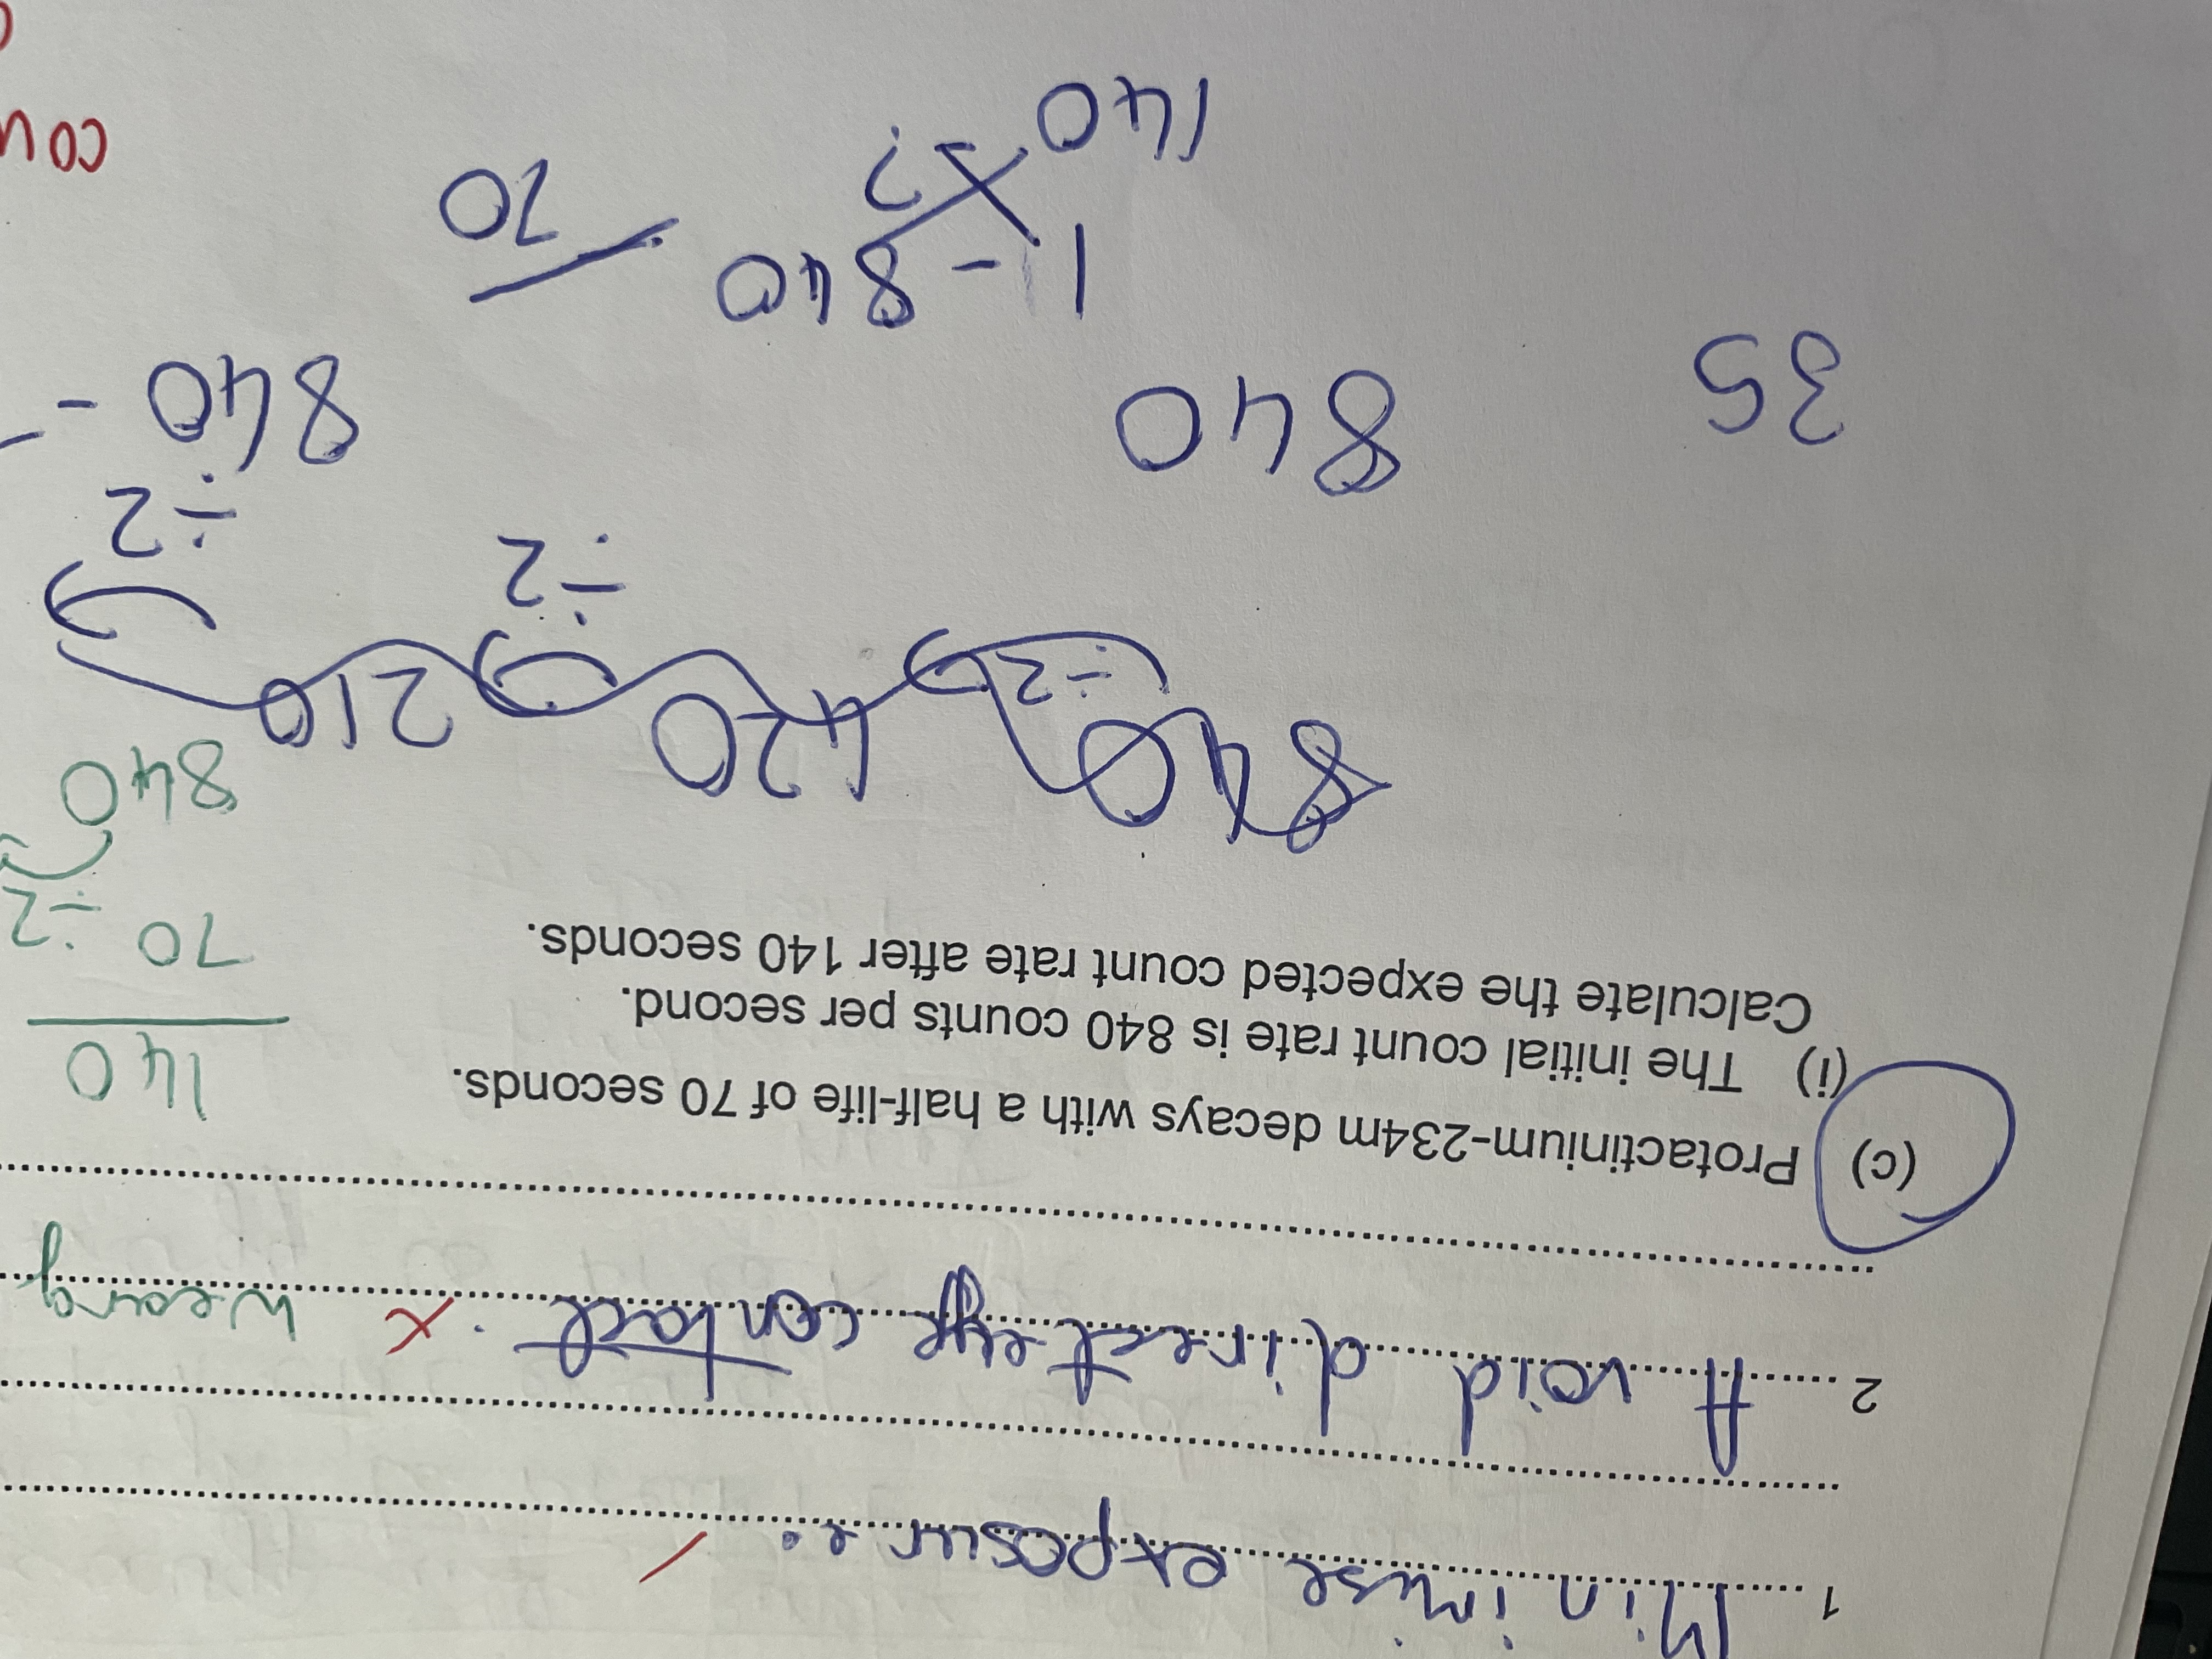 1 Minimise exposure.
2 Avoid direct eye contact. x wearing
(c) Protactinium-234m decays with a half-life of 70 seconds.
(i) The initial count rate is 840 counts per second.
Calculate the expected count rate after 140 seconds.
140
70 ÷2
840
840 ÷2 420 ÷2 210 ÷2
35 840 840 -
1 - 840
140 ?
70
cou